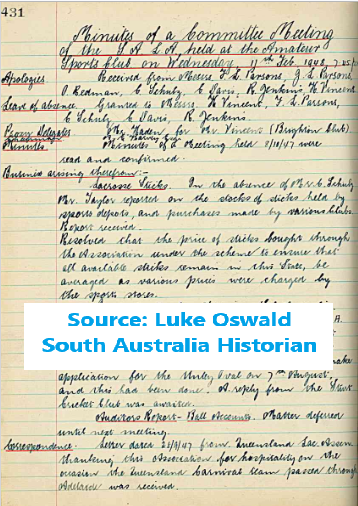 431
Minutes of a Committee Meeting
of the S A L A held at the Amateur
Sports Club on Wednesday, 11th Feb. 1948, 7.25
Apologies. Received from Messrs. F. L. Parsons, G. L. Parsons,
O. Redman, C. Schulz, C. Davis, R. Jenkins, H. Vincent
Leave of absence. Granted to Messrs. H. Vincent, F. L. Parsons,
C. Schulz, C. Davis, R. Jenkins.
Proxy Delegates. Mr. for Mr. Vincent (Brighton Club)
Minutes. Minutes of a Meeting held 8/10/47 were
read and confirmed.
Business arising therefrom:-
Lacrosse Sticks. In the absence of Mr. C. Schulz
Mr. Taylor reported on the stocks of sticks held by
sports depots, and purchases made by various Clubs.
Report received.
Resolved that the price of sticks bought through
the Association under the scheme to ensure that
all available sticks remain in this State, be
averaged as various prices were charged by
the sports stores.
Source: Luke Oswald
South Australia Historian
make
application for the Unley Oval on 7th August,
and this had been done. A reply from the Sturt
Cricket Club was awaited.
Auditors Report - Ball Accounts. Matter deferred
until next meeting.
Correspondence. Letter dated 21/9/47 from Queensland Lac. Assn
thanking this Association for hospitality on the
occasion the Queensland Carnival team passed through
Adelaide was received.